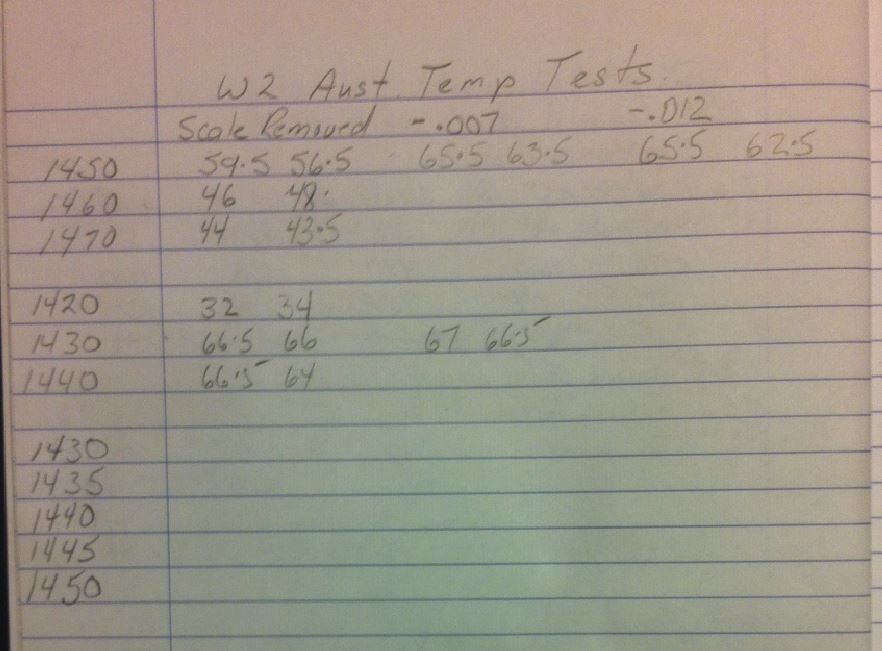 W2 Aust. Temp Tests.
Scale Removed -.007 -.012
1450 59.5 56.5 65.5 63.5 65.5 62.5
1460 46 48.
1470 44 43.5
1420 32 34
1430 66.5 66 67 66.5
1440 66.5 64
1430
1435
1440
1445
1450